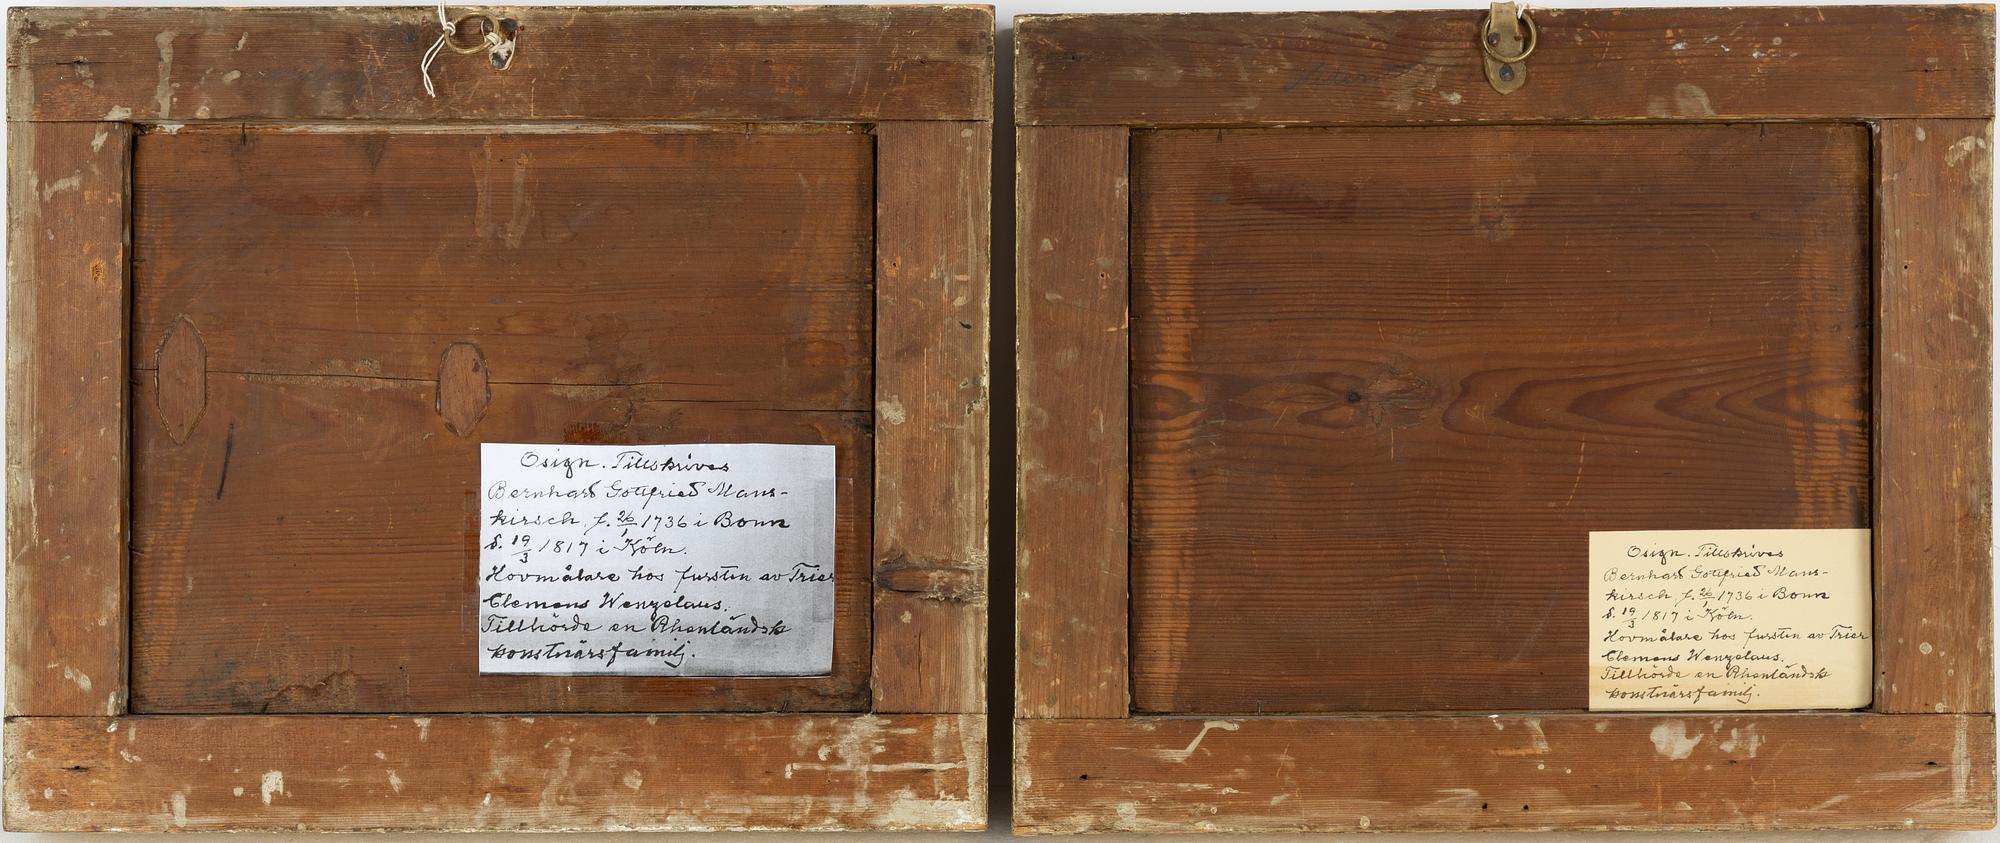 Osign. Tillskrives
Bernhard Gottfried Mans-
kirsch, f. 26/1 1736 i Bonn
d. 19/3 1817 i Köln.
Hovmålare hos fursten av Trier
Clemens Wenzelaus.
Tillhörde en Rhenländsk
konstnärsfamilj.
Osign. Tillskrives
Bernhard Gottfried Mans-
kirsch, f. 26/1 1736 i Bonn
d. 19/3 1817 i Köln.
Hovmålare hos fursten av Trier
Clemens Wenzelaus.
Tillhörde en Rhenländsk
konstnärsfamilj.